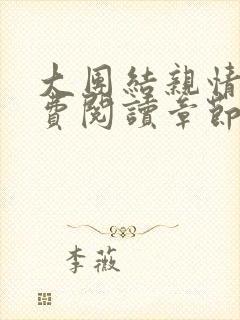 大團結親情
費閱讀章節
李薇